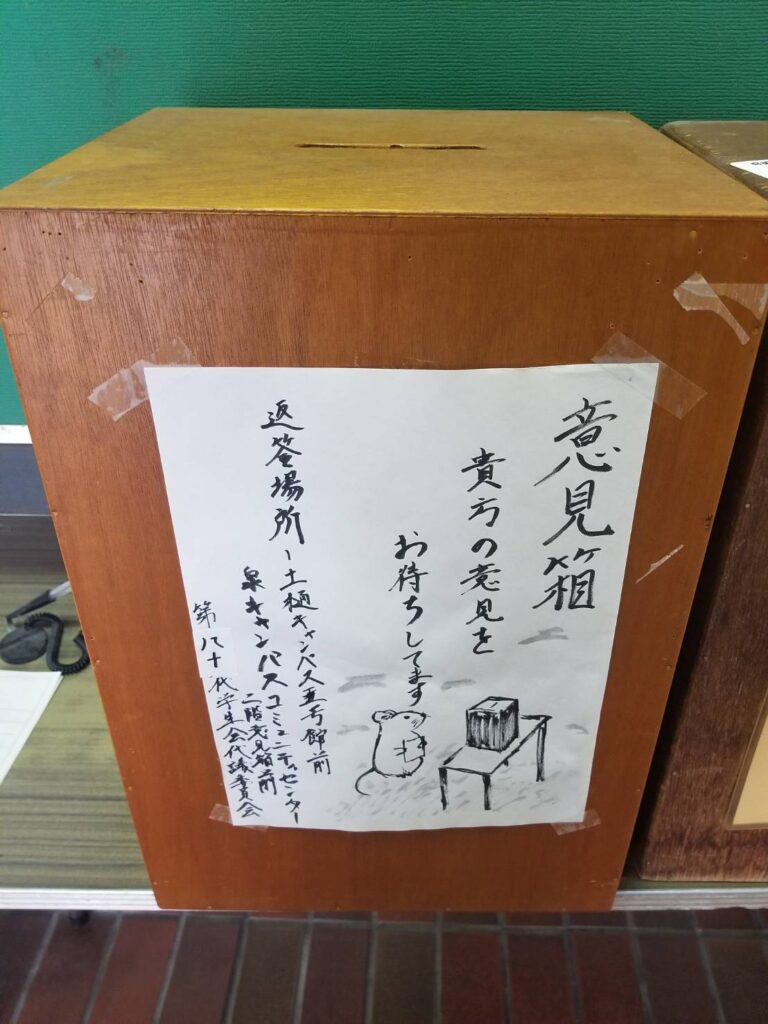 意見箱
貴方の意見を
お待ちしてます
返答場所ー土樋キャンパス五号館前
泉キャンパスコミュニティセンター
二階意見箱前
第八十代学生会代議委員会